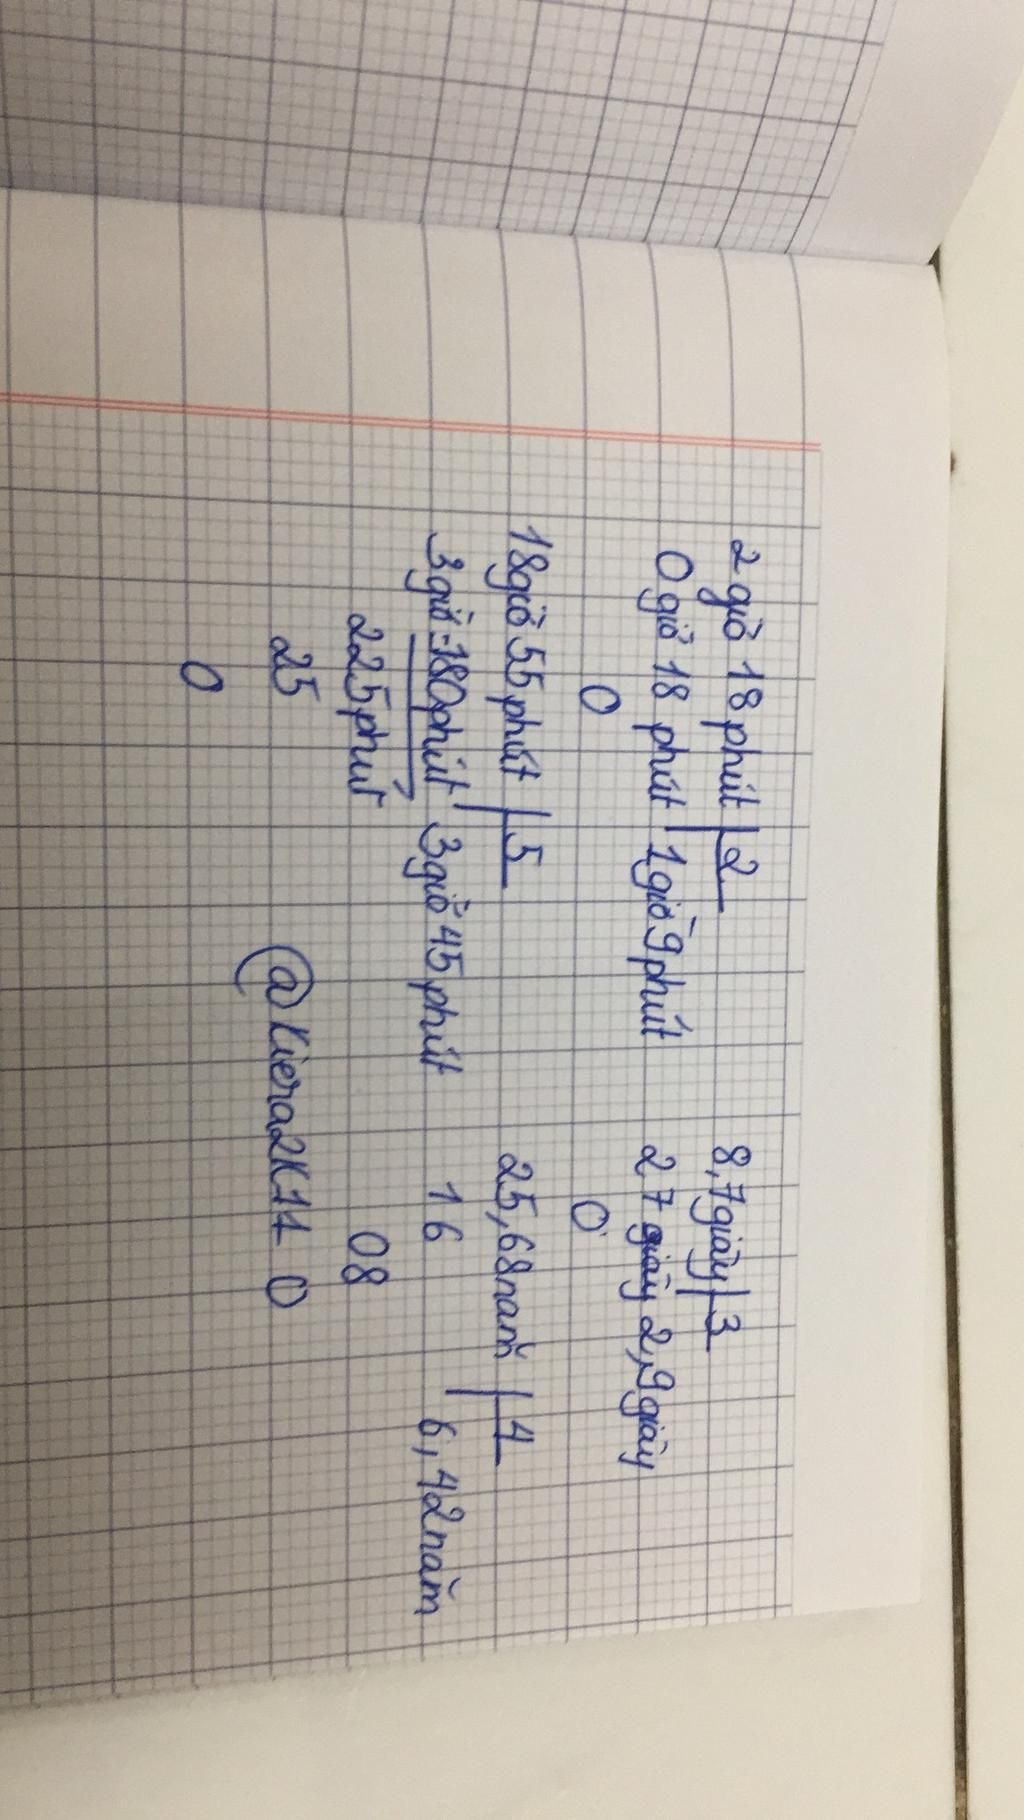 2 giờ 18 phút 2
0 giờ 18 phút 1 giờ 9 phút
0
8,7 giây 3
2 7 giây 2,9 giây
0
18 giờ 55 phút 5
3 giờ = 180 phút 3 giờ 45 phút
225 phút
25
0
25,68 năm 4
1 6 6,42 năm
08
0
@Kiera2K14